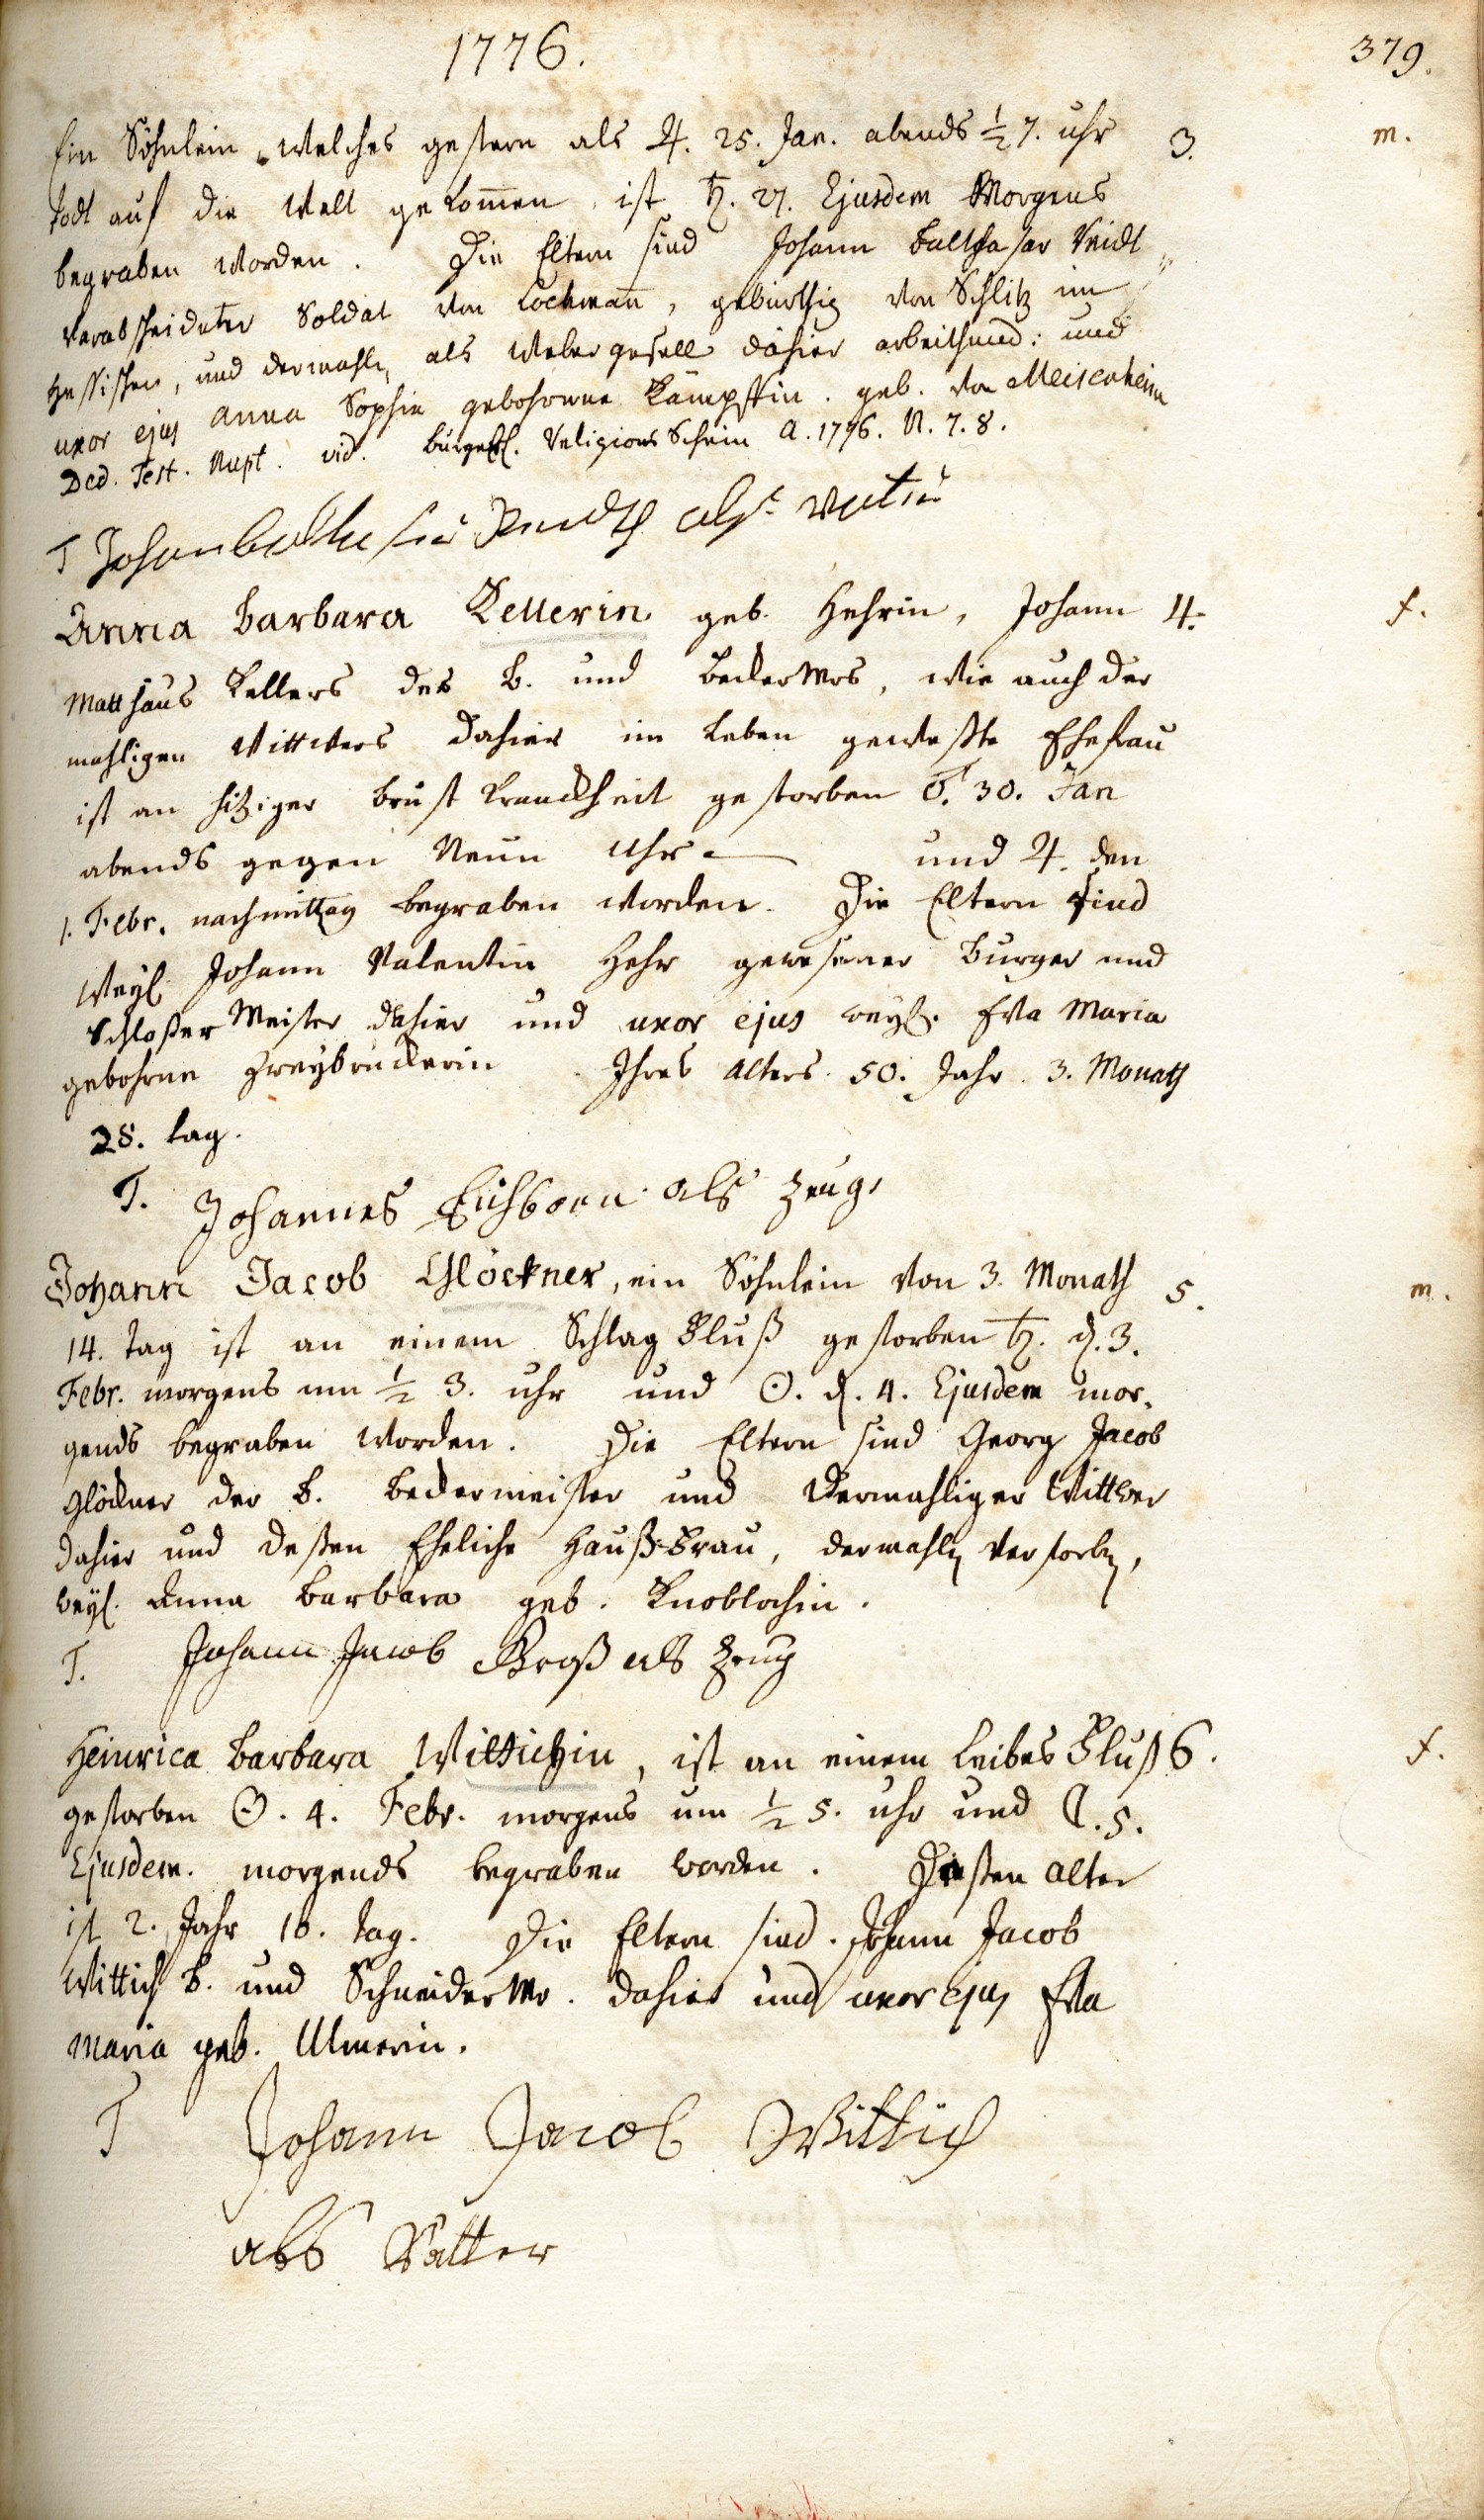 1776.
379.
Ein Söhnlein, welches gestern als ♃. 25. Jan. abends ½ 7. uhr 3. m.
todt auf die Welt gekom̄en, ist ♄. 27. Ejusdem Morgens
begraben worden. Die Eltern sind Johann Balthasar Veidt
verabscheideter Soldat von Lockman̄, gebürthig von Schlitz im
Hessischen, und dermahln als Webergesell dahier arbeithend: und
uxor ejus Anna Sophia gebohrene Kämpffin. geb. von Meisenheim
Ded. Test. Nupt. vid. Religions Schein A. 1776. N. 7. 8.
T Johan als Vatter
Anna Barbara Kellerin geb. Hehrin, Johann 4. f.
Matthäus Kellers des B. und Beckermrs, wie auch der
mahligen Wittwers dahier im Leben geweßte Ehefrau
ist an hitziger Brust Kranckheit gestorben ♂. 30. Jan
abends gegen Neun Uhr und ♃. den
1. Febr. nachmittag begraben worden. Die Eltern sind
Weyl. Johann Valentin Hehr gewesener Burger und
Schloßer Meister dahier und uxor ejus weyl. Eva Maria
gebohrne Zweybrückerin. Ihres Alters 50. Jahr. 3. Monath
28. tag.
T. Johannes Eichborn als Zeug,
Johann Jacob Glöckner, ein Söhnlein von 3. Monath 5. m.
14. tag ist an einem Schlag Fluß gestorben ♄. d. 3.
Febr. morgens um ½ 3. uhr und ☉. d. 4. Ejusdem mor,
gends begraben worden. Die Eltern sind Georg Jacob
Glöckner der B. Beckermeister und dermahliger Wittwer
dahier und deßen Eheliche Hauß-Frau, dermahln verstorbn,
weyl. Anna Barbara geb. Knoblochin.
T. Johann Jacob Groß als Zeug
Heinrica Barbara Wittichin, ist an einem Leibes Fluß 6. f.
gestorben ☉. 4. Febr. morgens um ½ 5. uhr und ☾. 5.
Ejusdem. morgends begraben worden. Deßen Alter
ist 2. Jahr 10. tag. Die Eltern sind. Johann Jacob
Wittich B. und Schneidermr. dahier und uxor ejus Eva
Maria geb. Ulmerin.
T Johann Jacob Wittich
als Vatter